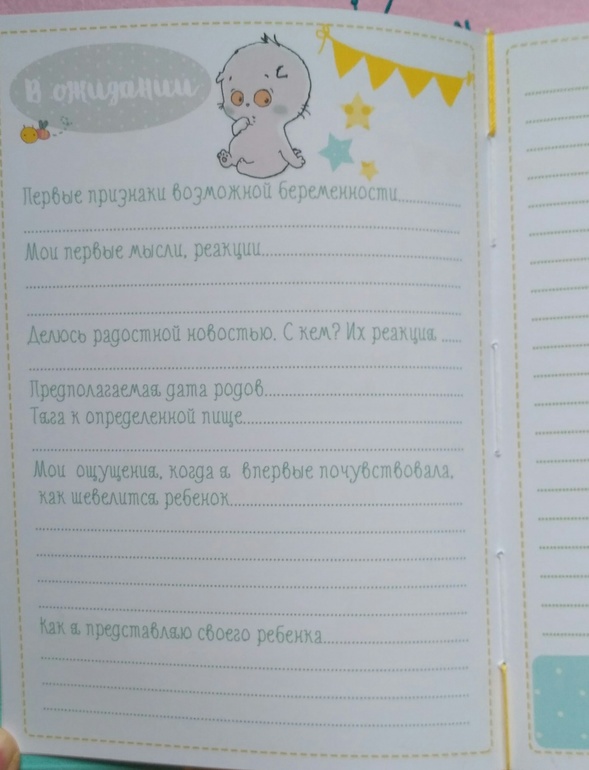 В ожидании
Первые признаки возможной беременности
Мои первые мысли, реакции
Делюсь радостной новостью. С кем? Их реакция
Предполагаемая дата родов
Тяга к определенной пище
Мои ощущения, когда я впервые почувствовала,
как шевелится ребенок
Как я представляю своего ребенка